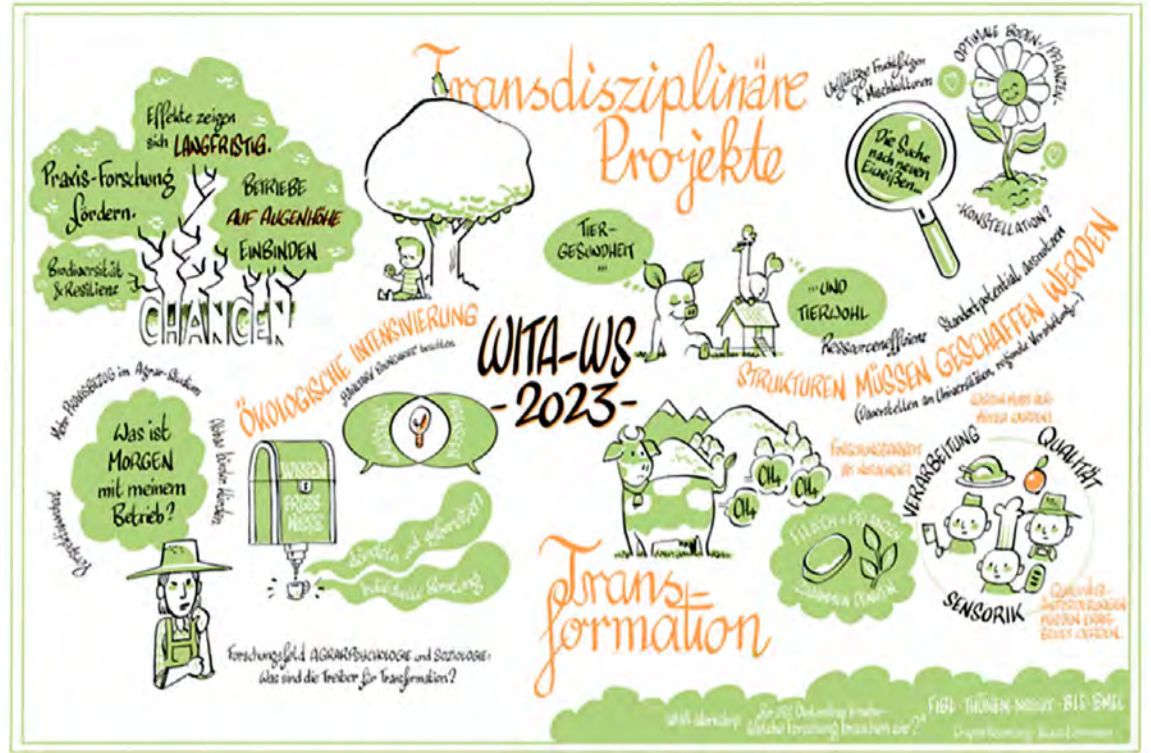 Transdisziplinäre
Projekte
Effekte zeigen
sich LANGFRISTIG.
Praxis-Forschung
fördern.
BETRIEBE
AUF AUGENHÖHE
EINBINDEN
Biodiversität
& Resilienz
CHANCEN
Vielfältige Fruchtfolgen
& Mischkulturen
Die Suche
nach neuen
Eiweißen...
OPTIMALE BODEN-/PFLANZEN-
-KONSTELLATION?
TIER-
GESUNDHEIT
...
...UND
TIERWOHL
Ressourceneffizienz
Standortpotential ausnutzen
STRUKTUREN MÜSSEN GESCHAFFEN WERDEN
(Dauerstellen an Universitäten, regionale Verarbeitung...)
ÖKOLOGISCHE INTENSIVIERUNG
"PLANETARY BOUNDARIES" beachten
WITA-WS
-2023-
Mehr PRAXISBEZUG im Agrar-Studium
Was ist
MORGEN
mit meinem
Betrieb?
WISSEN
ERGEB
NISSE
bündeln und
individuelle Beratung
Forschungsfeld AGRARPSYCHOLOGIE und SOZIOLOGIE:
Was sind die Treiber für Transformation?
CH4
CH4
CH4
CH4
FLEISCH + PFLANZEN
ZUSAMMEN DENKEN
Trans-
formation
VERARBEITUNG
QUALITÄT
SENSORIK
MÜSSEN ERAR-
BEITET WERDEN.
WITA-Workshop
Welche Forschung brauchen wir?"
FIBL · THÜNEN-INSTITUT · BLE · BMEL
Graphic Recording: